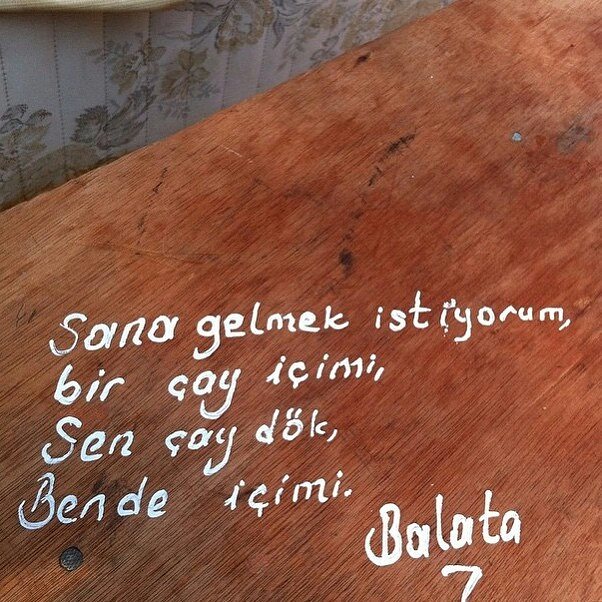 Sana gelmek istiyorum,
bir çay içimi,
Sen çay dök,
Bende içimi.
Balata
7